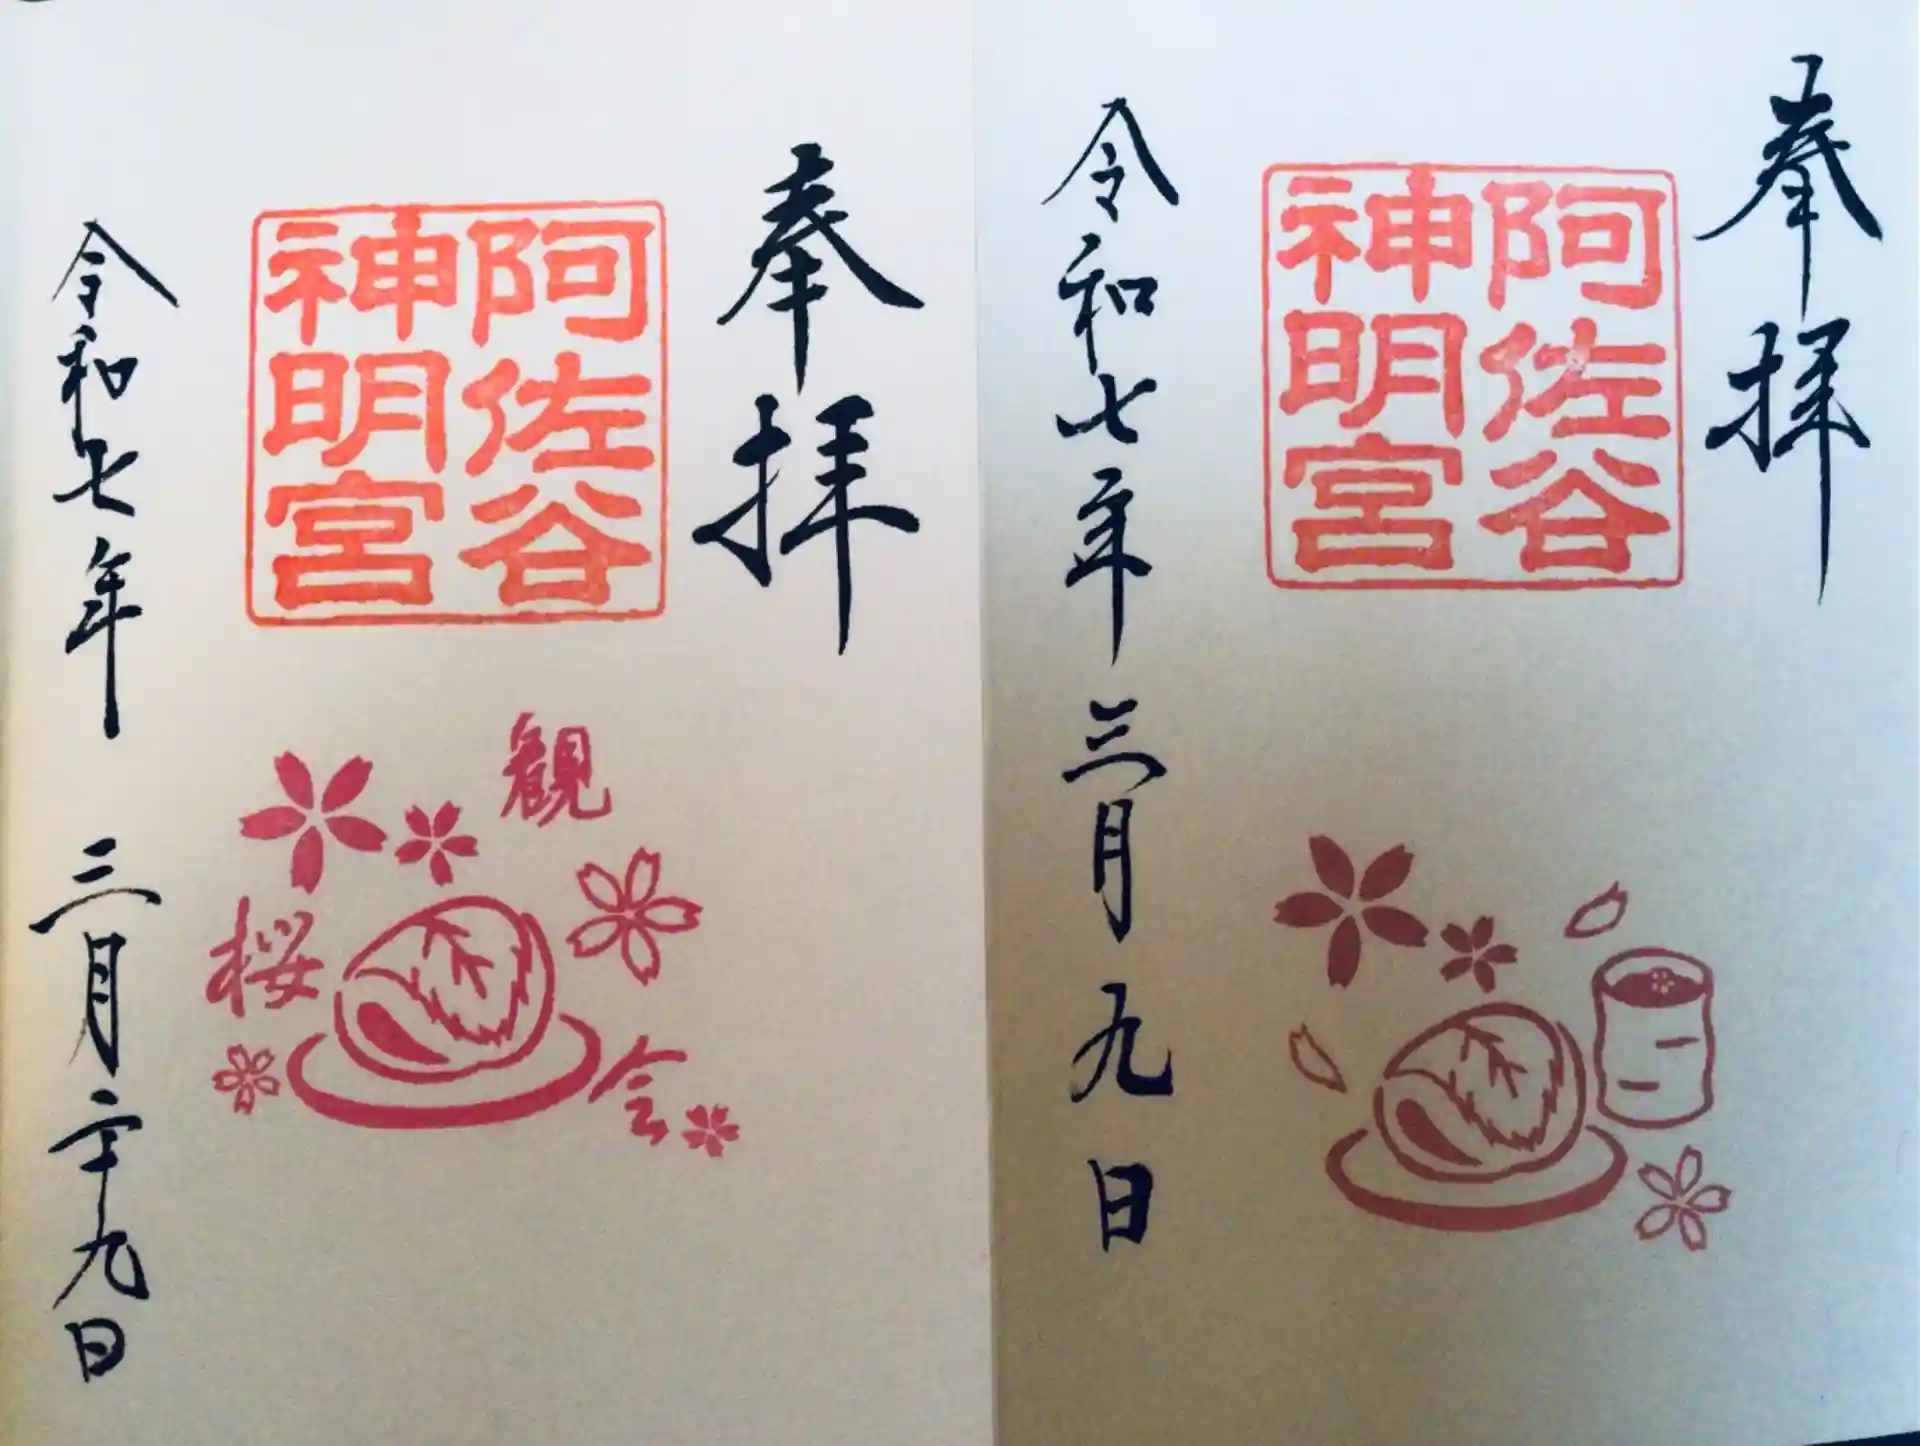 奉拝
阿佐谷
神明宮
令和七年三月九日
奉拝
阿佐谷
神明宮
観
桜
会
令和七年三月二十九日